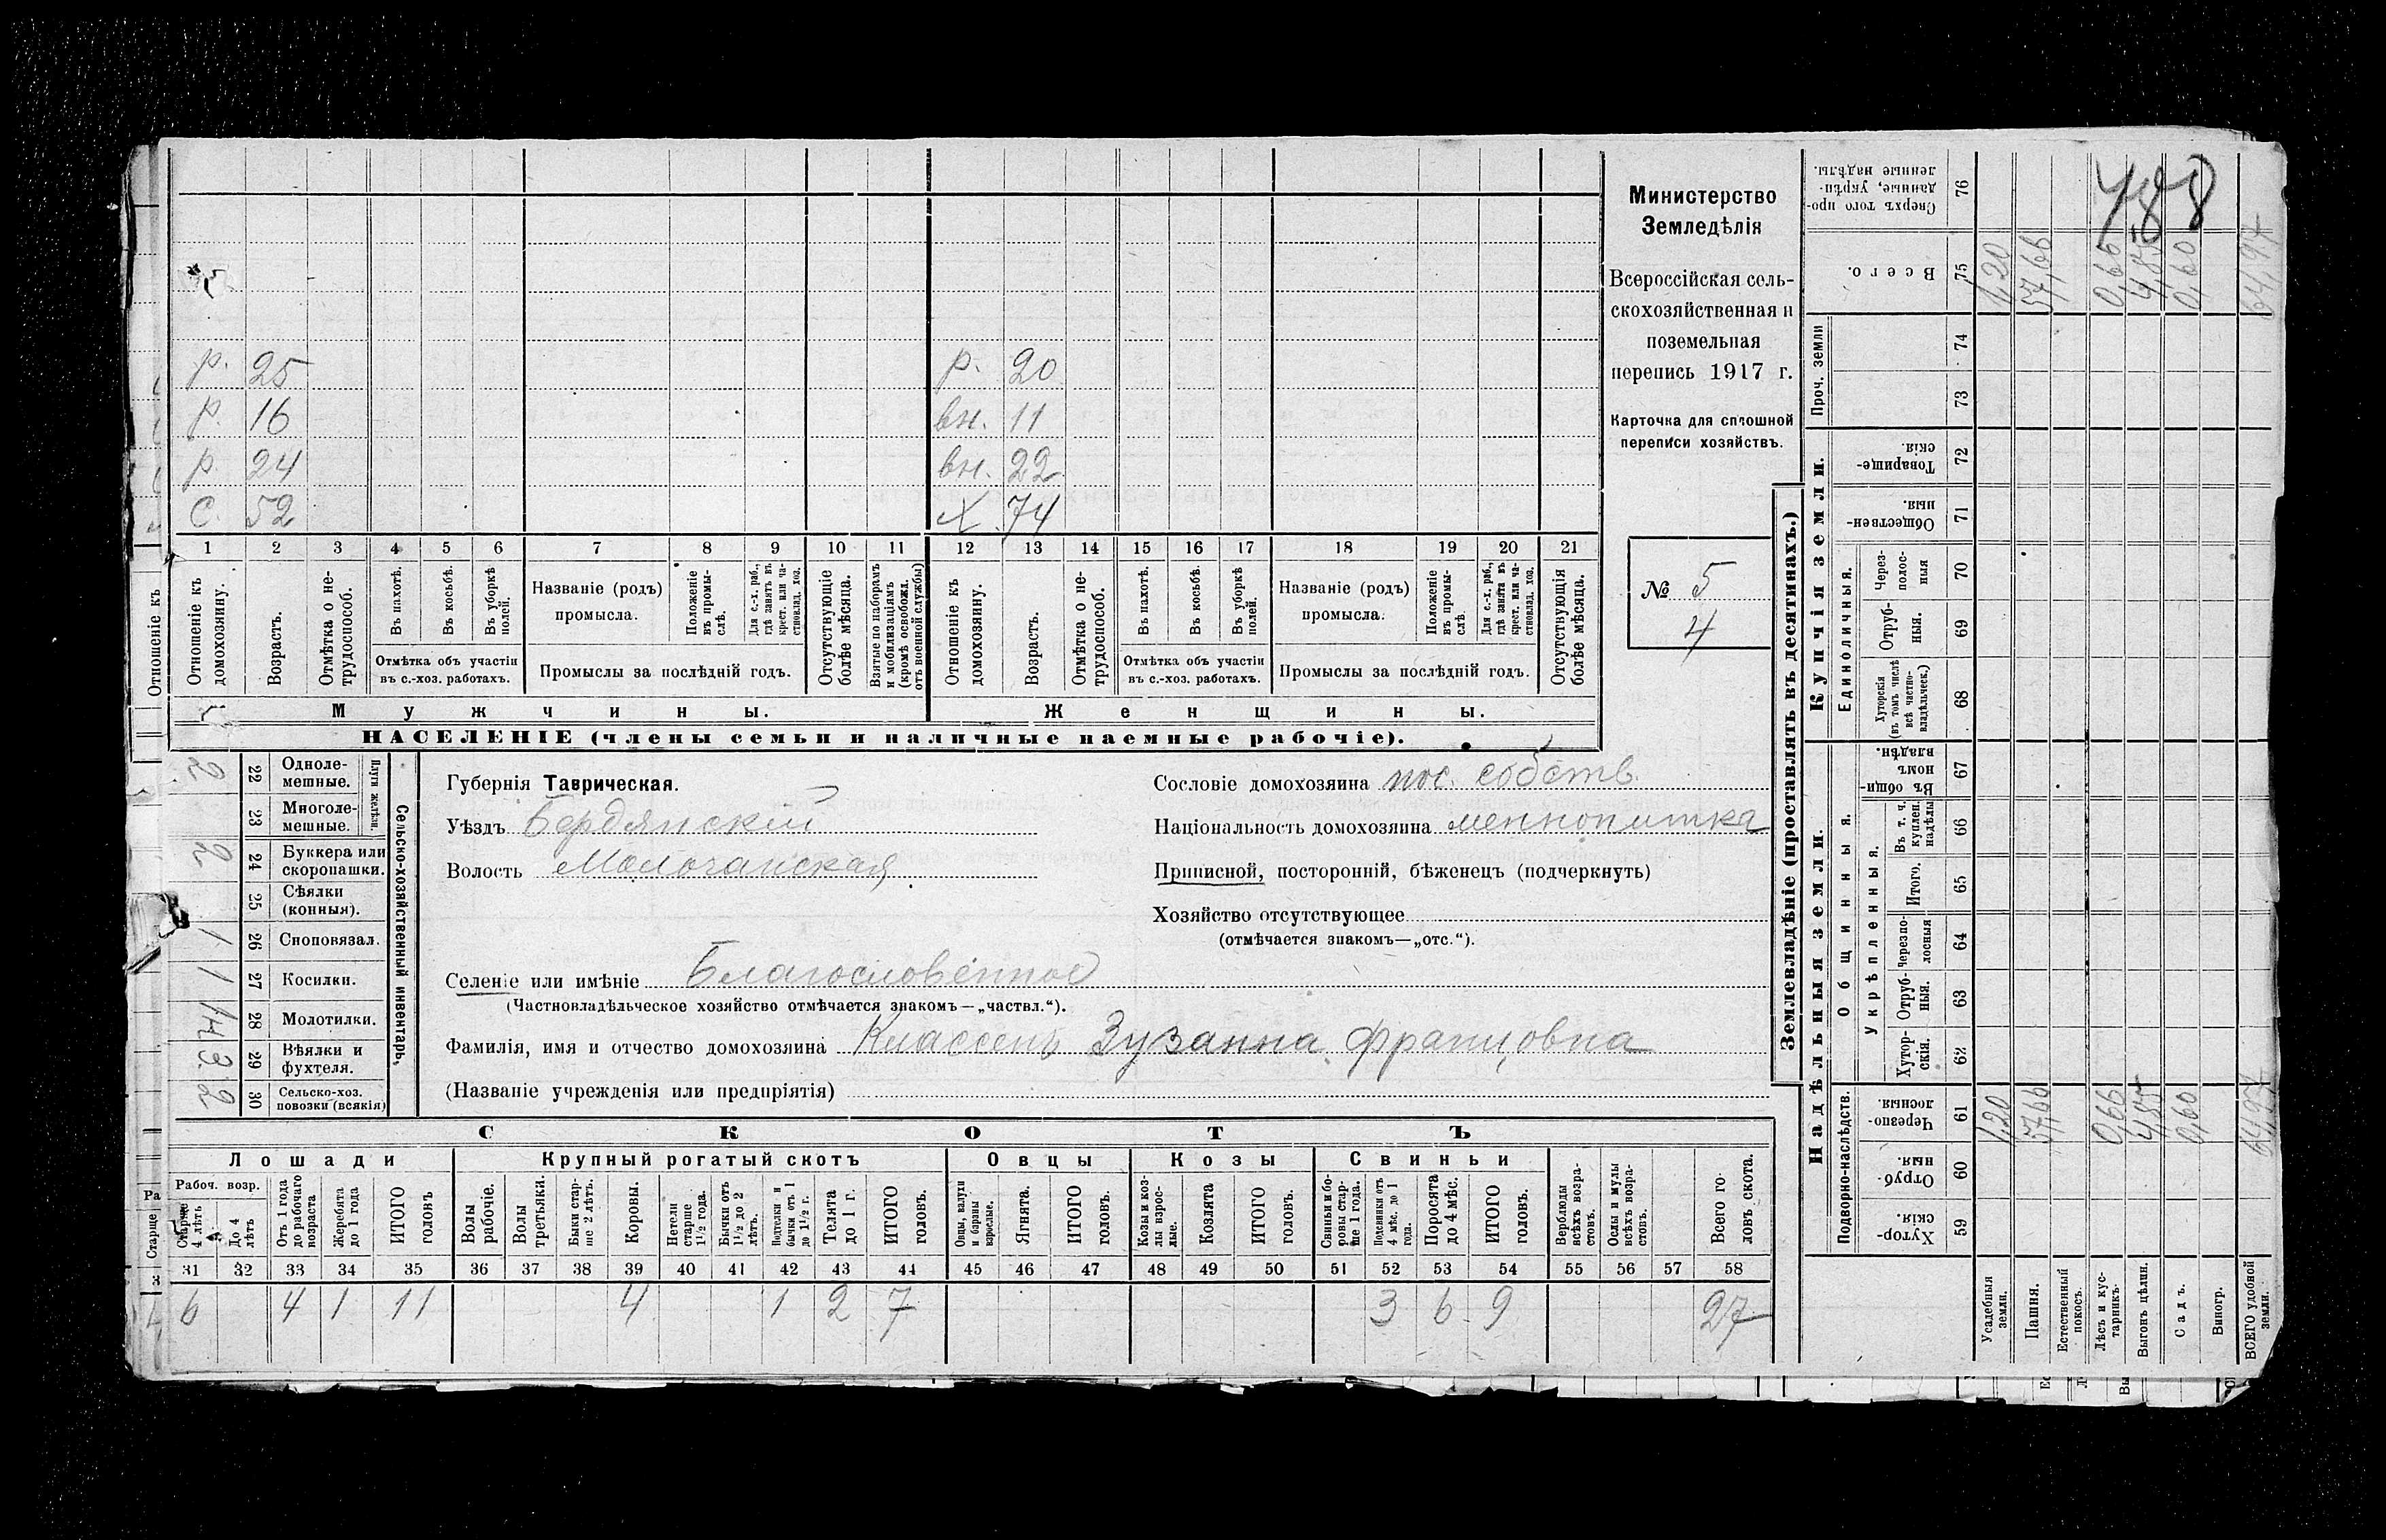 Министерство
Земледѣлія
Всероссійская сель-
скохозяйственная и
поземельная
перепись 1917 г.
Карточка для сплошной
переписи хозяйствъ.
№ 5
4
р. 25 р. 20
р. 16 вн. 11
р. 24 вн. 22
С. 52 Х. 74
1 2 3 4 5 6 7 8 9 10 11 12 13 14 15 16 17 18 19 20 21
Отношеніе къ домохозяину.
Возрастъ.
Отмѣтка о не-трудоспособ.
Въ пахотѣ.
Въ косьбѣ.
Въ уборкѣ полей.
Отмѣтка объ участіи въ с.-хоз. работахъ.
Названіе (родъ) промысла.
Положеніе въ промы-слѣ.
Для с.-х. раб., гдѣ занятъ въ крест. или ча-стновлад. хоз.
Промыслы за послѣдній годъ.
Отсутствующіе болѣе мѣсяца.
Взятые по наборамъ и мобилизаціямъ (кромѣ освобожд. отъ военной службы)
Отношеніе къ домохозяину.
Возрастъ.
Отмѣтка о не-трудоспособ.
Въ пахотѣ.
Въ косьбѣ.
Въ уборкѣ полей.
Отмѣтка объ участіи въ с.-хоз. работахъ.
Названіе (родъ) промысла.
Положеніе въ промы-слѣ
Для с.-х. раб., гдѣ занята въ крест. или ча-стновлад. хоз.
Промыслы за послѣдній годъ.
Отсутствующія болѣе мѣсяца.
Мужчины. Женщины.
НАСЕЛЕНІЕ (члены семьи и наличные наемные рабочіе).
Сельско-хозяйственный инвентарь.
Плуги желѣзн.
2 22 Одноле-мешные.
23 Многоле-мешные.
2 24 Буккера или скоропашки.
25 Сѣялки (конныя).
1 26 Сноповязал.
1 27 Косилки.
28 Молотилки.
3 29 Вѣялки и фухтеля.
2 30 Сельско-хоз. повозки (всякія)
Губернія Таврическая.
Уѣздъ Бердянскій
Волость Молочанская
Сословіе домохозяина пос. собств.
Національность домохозяина меннонитка
Приписной, посторонній, бѣженецъ (подчеркнуть)
Хозяйство отсутствующее
(отмѣчается знакомъ—„отс.“).
Селеніе или имѣніе Благословенное
(Частновладѣльческое хозяйство отмѣчается знакомъ—„частвл.“).
Фамилія, имя и отчество домохозяина Классенъ Зузанна Францовна
(Названіе учрежденія или предпріятія)
СКОТЪ
Лошади Крупный рогатый скотъ Овцы Козы Свиньи
Рабоч. возр.
Старше 4 лѣтъ
До 4 лѣтъ
Отъ 1 года до рабочаго возраста
Жеребята до 1 года
ИТОГО головъ
Волы рабочіе.
Волы третьяки.
Быки стар-ше 2 лѣтъ.
Коровы.
Нетели старше 1½ года.
Бычки отъ 1½ до 2 лѣтъ.
Подтелки и бычки отъ 1 до 1½ г.
Телята до 1 г.
ИТОГО головъ.
Овцы, валухи и бараны взрослые.
Ягнята.
ИТОГО головъ.
Козы и коз-лы взрос-лые.
Козлята
ИТОГО головъ.
Свиньи и бо-ровы стар-ше 1 года.
Подсвинки отъ 4 мѣс. до 1 года.
Поросята до 4 мѣс.
ИТОГО головъ.
Верблюды всѣхъ возра-стовъ.
Ослы и мулы всѣхъ возра-стовъ.
Всего го-ловъ скота.
31 32 33 34 35 36 37 38 39 40 41 42 43 44 45 46 47 48 49 50 51 52 53 54 55 56 57 58
6 4 1 11 4 1 2 7 3 6 9 27
Землевладѣніе (проставлять въ десятинахъ.)
Надѣльныя земли. Купчія земли. Проч. земли
Подворно-наслѣдств.
Общинныя.
Укрѣпленныя.
Единоличныя.
Хутор-скія. 59
Отруб-ныя. 60
Черезпо-лосныя. 61
Хутор-скія. 62
Отруб-ныя. 63
Черезпо-лосныя 64
Итого. 65
Въ т. ч. куплен. надѣлы 66
Въ общин-номъ владѣн. 67
Хуторскія (въ томъ числѣ всѣ частно-владѣльческ.) 68
Отруб-ныя. 69
Через-полос-ныя 70
Обществен-ныя. 71
Товарище-скія. 72
73
74
Всего. 75
Сверхъ того про-данные, укрѣп-ленные надѣлы. 76
488
Усадебныя земли. 1,20 1,20
Пашня. 57,66 57,66
Естественный покосъ.
Лѣсъ и кус-тарникъ. 0,66 0,66
Выгонъ цѣлин. 4,85 4,85
Садъ. 0,60 0,60
Виногр.
ВСЕГО удобной земли. 64,97 64,97